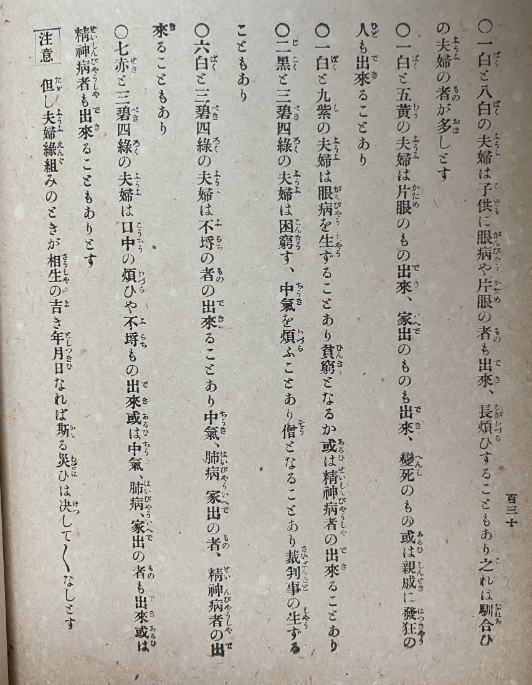 〇一白と八白の夫婦は子供に眼病や片眼の者も出來、長煩ひすることもあり之れは馴合ひ
の夫婦の者が多しとす
〇一白と五黄の夫婦は片眼のもの出來、家出のものも出來、變死のもの或は親戚に發狂の
人も出來ることあり
〇一白と九紫の夫婦は眼病を生ずることあり貧窮となるか或は精神病者の出來ることあり
〇二黑と三碧四綠の夫婦は困窮す、中氣を煩ふことあり僧となることあり裁判事の生ずる
こともあり
〇六白と三碧四綠の夫婦は不埒の者の出來ることあり中氣、肺病、家出の者、精神病者の出
來ることもあり
〇七赤と三碧四綠の夫婦は口中の煩ひや不埒もの出來或は中氣、肺病、家出の者も出來或は
精神病者も出來ることもありとす
注意 但し夫婦緣組みのときが相生の吉き年月日なれば斯る災ひは決して〱なしとす
百三十